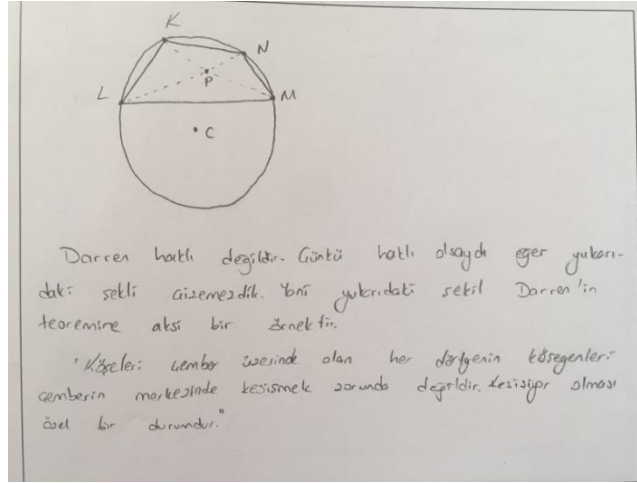 K
N
P
L
M
C
Darren haklı değildir. Çünkü haklı olsaydı eğer yukarı-
daki şekli çizemezdik. Yani yukarıdaki şekil Darren'in
teoremine aksi bir örnektir.
"Köşeleri çember üzerinde olan her dörtgenin köşegenleri
çemberin merkezinde kesişmek zorunda değildir. Kesişiyor olması
özel bir durumdur."